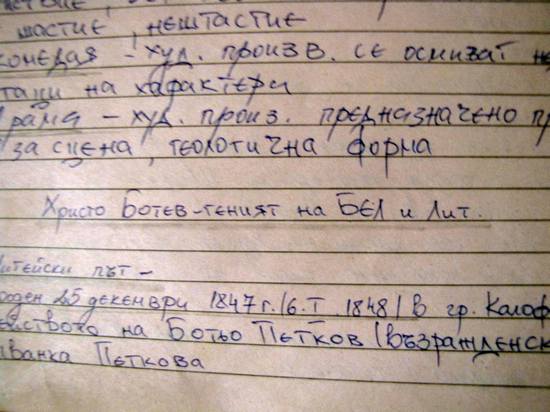 щастие, нещастие
комедия - худ. произв. се осмиват не
тъци на характери
драма - худ. произ. предназначено пр
за сцена, теологична форма
Христо Ботев-геният на БЕЛ и Лит.
итейски път -
роден 25 декември 1847 г. /6. I. 1848/ в гр. Калоф
ейството на Ботьо Петков /възрожденск
Иванка Петкова